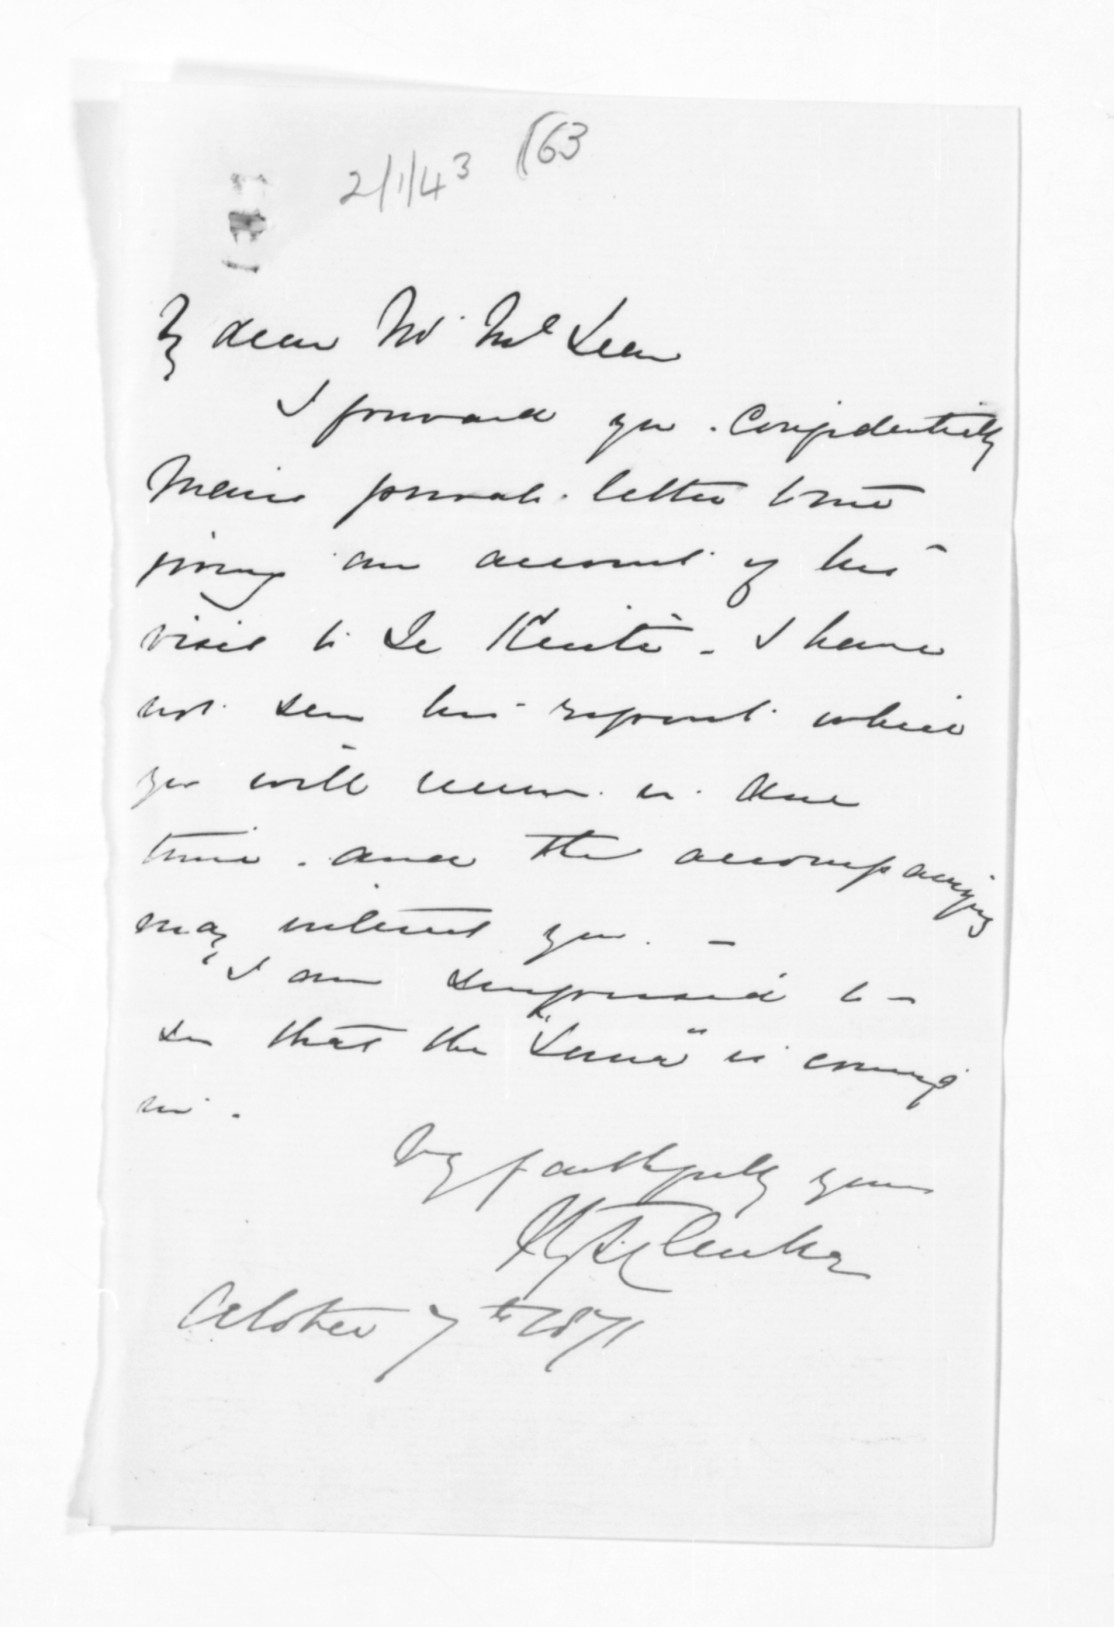 2/1/43 (63
My dear Mr McLean
I forward you. Confidentially
Mairs private letter to me
giving an account of his
visit to Te Kuiti - I have
not seen his report which
you will receive in due
time. and the accompanying
may interest you. -
I am surprised to -
see that the "Luna" is coming
in.
Very faithfully yours
H. T. Clarke
October 7th 1871